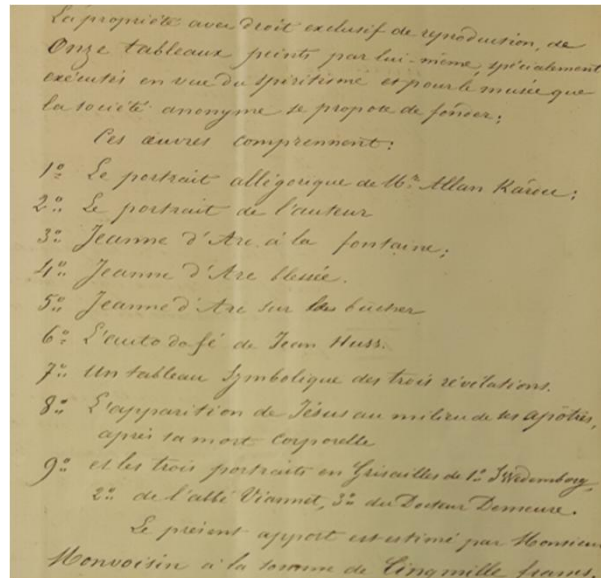 La propriété avec droit exclusif de reproduction, de
Onze tableaux peints par lui-même, spécialement
exécutés en vue du spiritisme et pour le musée que
la société anonyme se propose de fonder;
Ces œuvres comprennent:
1º Le portrait allégorique de Mr Allan Kardec;
2º Le portrait de l'auteur
3º Jeanne d'Arc à la fontaine;
4º Jeanne d'Arc blessée.
5º Jeanne d'Arc sur le bûcher
6º L'auto da fé de Jean Huss.
7º Un tableau Symbolique des trois révélations.
8º L'apparition de Jésus au milieu de ses apôtres,
après sa mort Corporelle
9º et les trois portraits en Grisailles de 1º Swedemborg,
2º de l'abbé Viannet, 3º du Docteur Demeure.
Le présent apport est estimé par Monsieur
Monvoisin à la somme de Cinq mille francs.